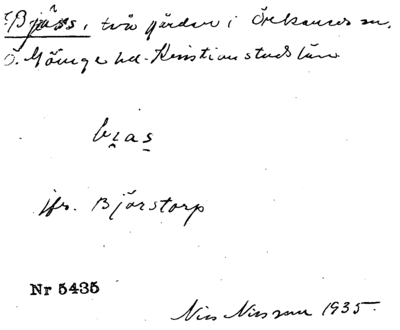 Bjäss, två gårdar i Örkeneds sn.
Ö. Göinge hd. Kristianstads län
jfr. Björstorp
Nr 5435
Nils Nilsson 1935.